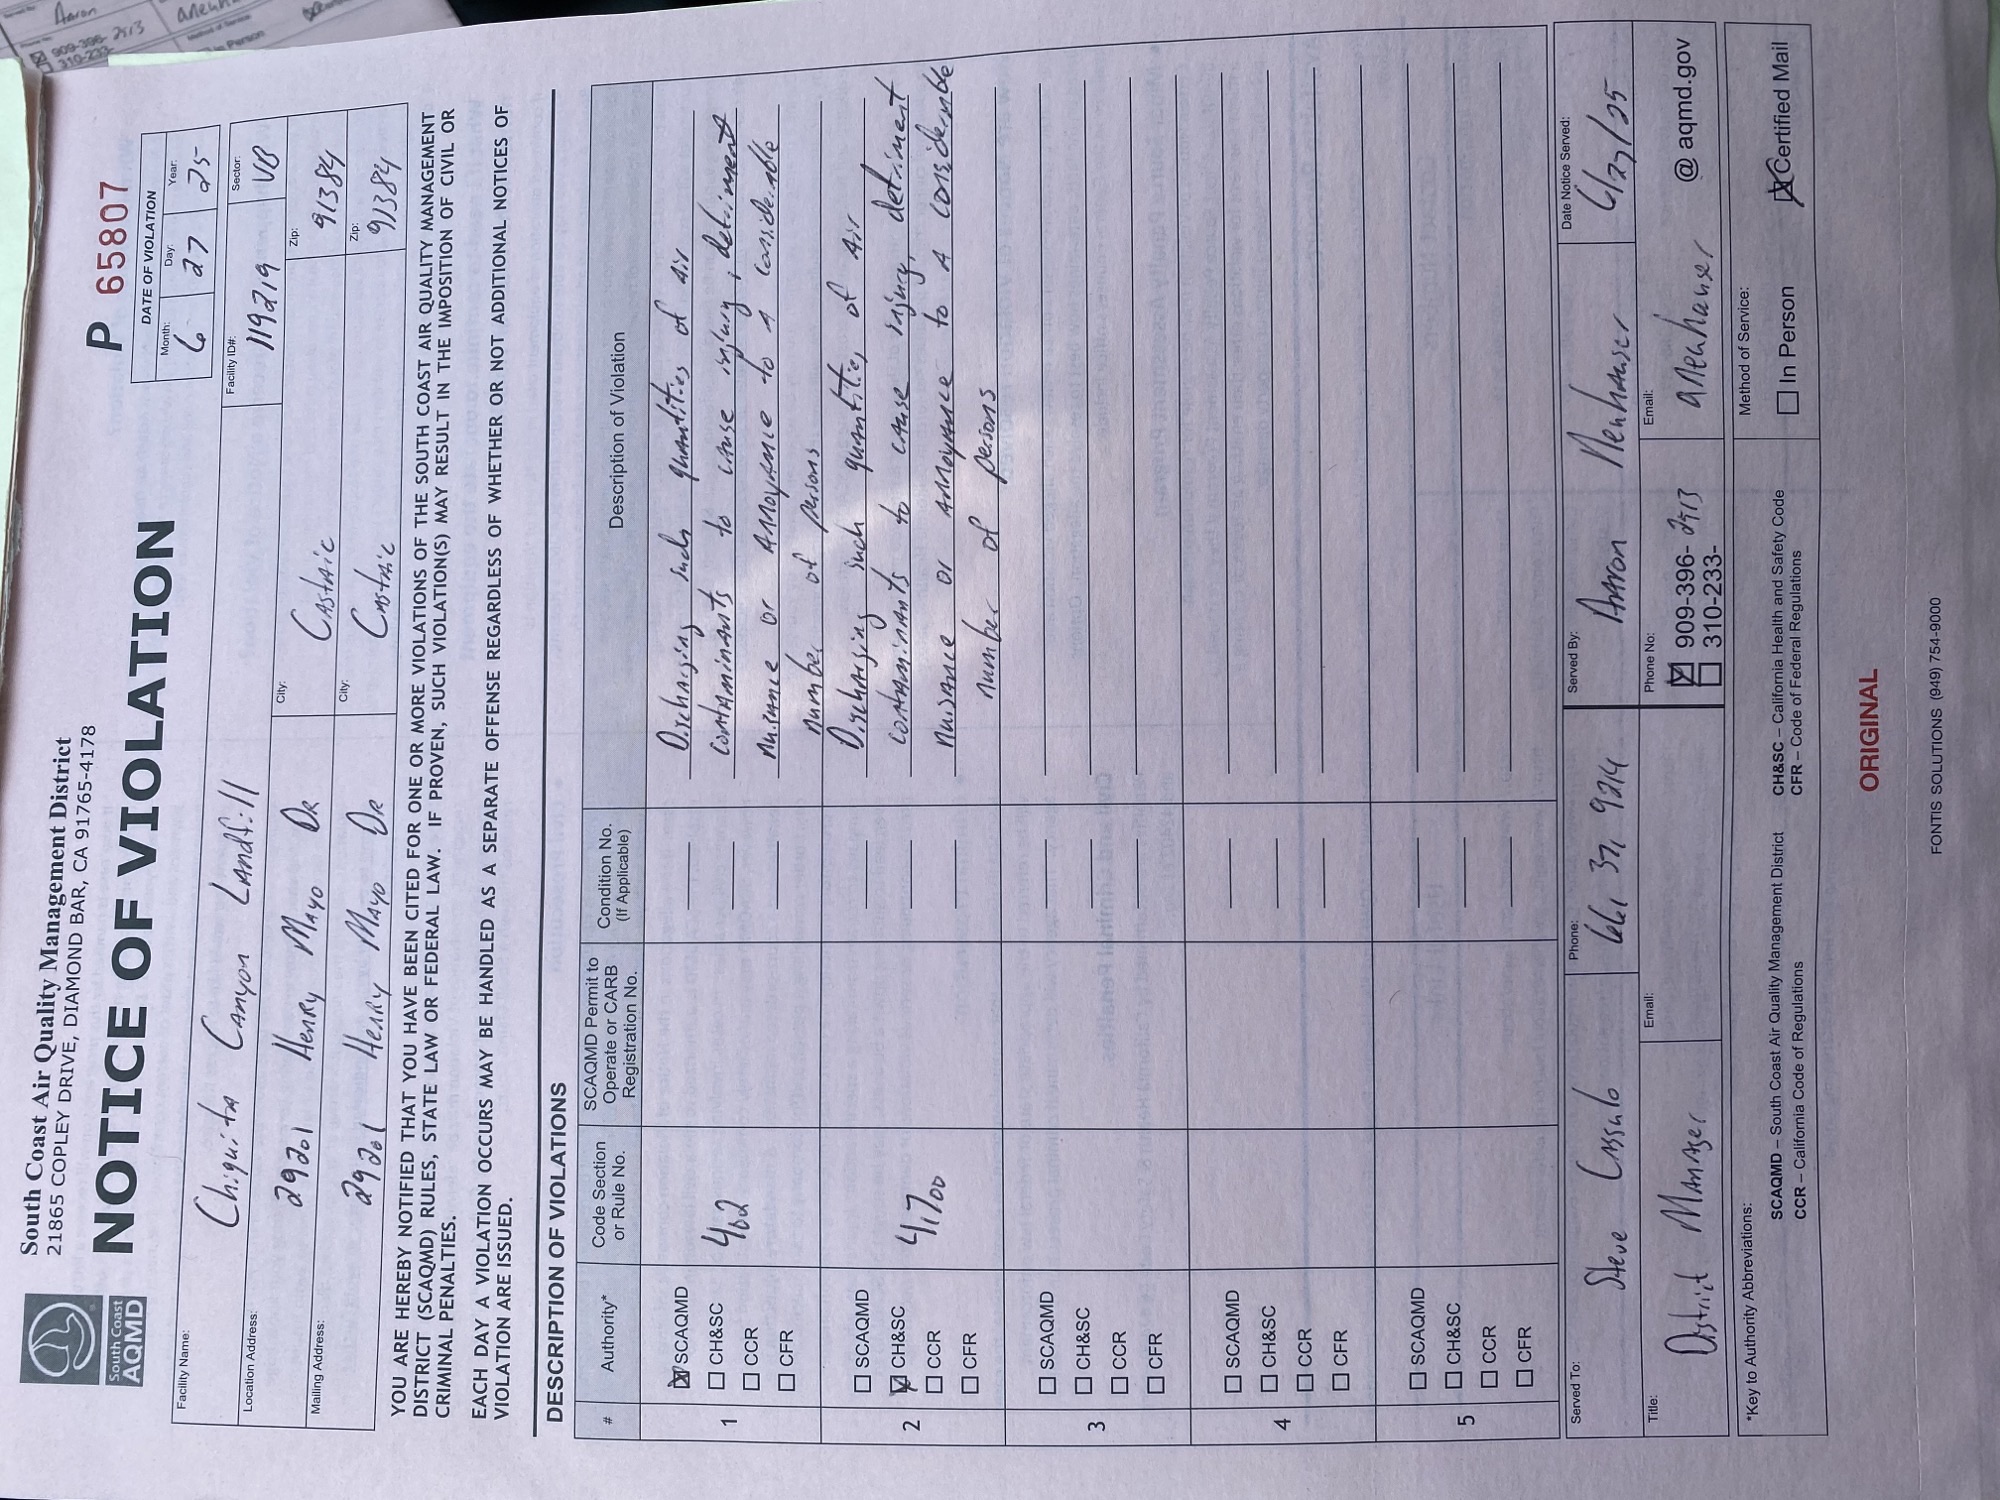 South Coast
AQMD
South Coast Air Quality Management District
21865 COPLEY DRIVE, DIAMOND BAR, CA 91765-4178
NOTICE OF VIOLATION
P 65807
DATE OF VIOLATION
Month: 6 Day: 27 Year: 25
Facility Name: Chiquita Canyon Landfill Facility ID#: 119219 Sector: VB
Location Address: 29201 Henry Mayo Dr City: Castaic Zip: 91384
Mailing Address: 29201 Henry Mayo Dr City: Castaic Zip: 91384
YOU ARE HEREBY NOTIFIED THAT YOU HAVE BEEN CITED FOR ONE OR MORE VIOLATIONS OF THE SOUTH COAST AIR QUALITY MANAGEMENT
DISTRICT (SCAQMD) RULES, STATE LAW OR FEDERAL LAW. IF PROVEN, SUCH VIOLATION(S) MAY RESULT IN THE IMPOSITION OF CIVIL OR
CRIMINAL PENALTIES.
EACH DAY A VIOLATION OCCURS MAY BE HANDLED AS A SEPARATE OFFENSE REGARDLESS OF WHETHER OR NOT ADDITIONAL NOTICES OF
VIOLATION ARE ISSUED.
DESCRIPTION OF VIOLATIONS
# Authority* Code Section or Rule No. SCAQMD Permit to Operate or CARB Registration No. Condition No. (If Applicable) Description of Violation
1
☒ SCAQMD
☐ CH&SC
☐ CCR
☐ CFR
402
Discharging such quantities of air
contaminants to cause injury, detriment
nuisance or annoyance to a considerable
number of persons
2
☐ SCAQMD
☒ CH&SC
☐ CCR
☐ CFR
41700
Discharging such quantities of air
contaminants to cause injury, detriment
nuisance or annoyance to a considerable
number of persons
3
☐ SCAQMD
☐ CH&SC
☐ CCR
☐ CFR
4
☐ SCAQMD
☐ CH&SC
☐ CCR
☐ CFR
5
☐ SCAQMD
☐ CH&SC
☐ CCR
☐ CFR
Served To: Steve Cassulo Phone: 661 371 9214 Served By: Aaron Neuhauser Date Notice Served: 6/27/25
Title: District Manager Email: Phone No: ☒ 909-396-2513 Email: aneuhauser @ aqmd.gov
☐ 310-233-
*Key to Authority Abbreviations:
SCAQMD – South Coast Air Quality Management District CH&SC – California Health and Safety Code
CCR – California Code of Regulations CFR – Code of Federal Regulations
Method of Service:
☐ In Person ☒ Certified Mail
ORIGINAL
FONTIS SOLUTIONS (949) 754-9000
Aaron
909-396-2513
310-233-